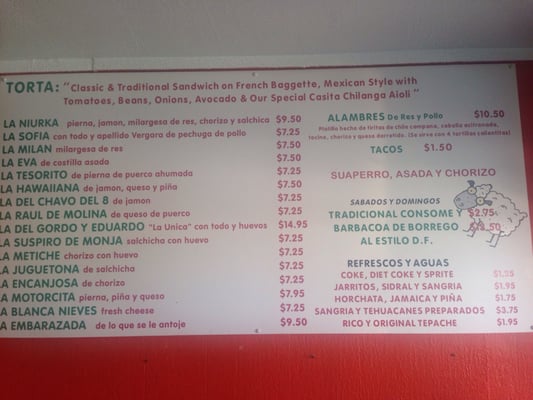 TORTA: "Classic & Traditional Sandwich on French Baggette, Mexican Style with
Tomatoes, Beans, Onions, Avocado & Our Special Casita Chilanga Aioli"
LA NIURKA pierna, jamon, milargesa de res, chorizo y salchica $9.50
LA SOFIA con todo y apellido Vergara de pechuga de pollo $7.25
LA MILAN milargesa de res $7.50
LA EVA de costilla asada $7.50
LA TESORITO de pierna de puerco ahumada $7.25
LA HAWAIIANA de jamon, queso y piña $7.50
LA DEL CHAVO DEL 8 de jamon $7.25
LA RAUL DE MOLINA de queso de puerco $7.25
LA DEL GORDO Y EDUARDO "La Unica" con todo y huevos $14.95
LA SUSPIRO DE MONJA salchicha con huevo $7.25
LA METICHE chorizo con huevo $7.25
LA JUGUETONA de salchicha $7.25
LA ENCANJOSA de chorizo $7.25
A MOTORCITA pierna, piña y queso $7.95
A BLANCA NIEVES fresh cheese $7.25
A EMBARAZADA de lo que se le antoje $9.50
ALAMBRES De Res y Pollo $10.50
Platillo hecho de tiritas de chile campana, cebolla acitronada,
tocino, chorizo y queso derretido. (Se sirve con 4 tortillas calientitas)
TACOS $1.50
SUAPERRO, ASADA Y CHORIZO
SABADOS Y DOMINGOS
TRADICIONAL CONSOME Y $2.75
BARBACOA DE BORREGO
AL ESTILO D.F.
REFRESCOS Y AGUAS
COKE, DIET COKE Y SPRITE
JARRITOS, SIDRAL Y SANGRIA $1.95
HORCHATA, JAMAICA Y PIÑA $1.75
SANGRIA Y TEHUACANES PREPARADOS $3.75
RICO Y ORIGINAL TEPACHE $1.95